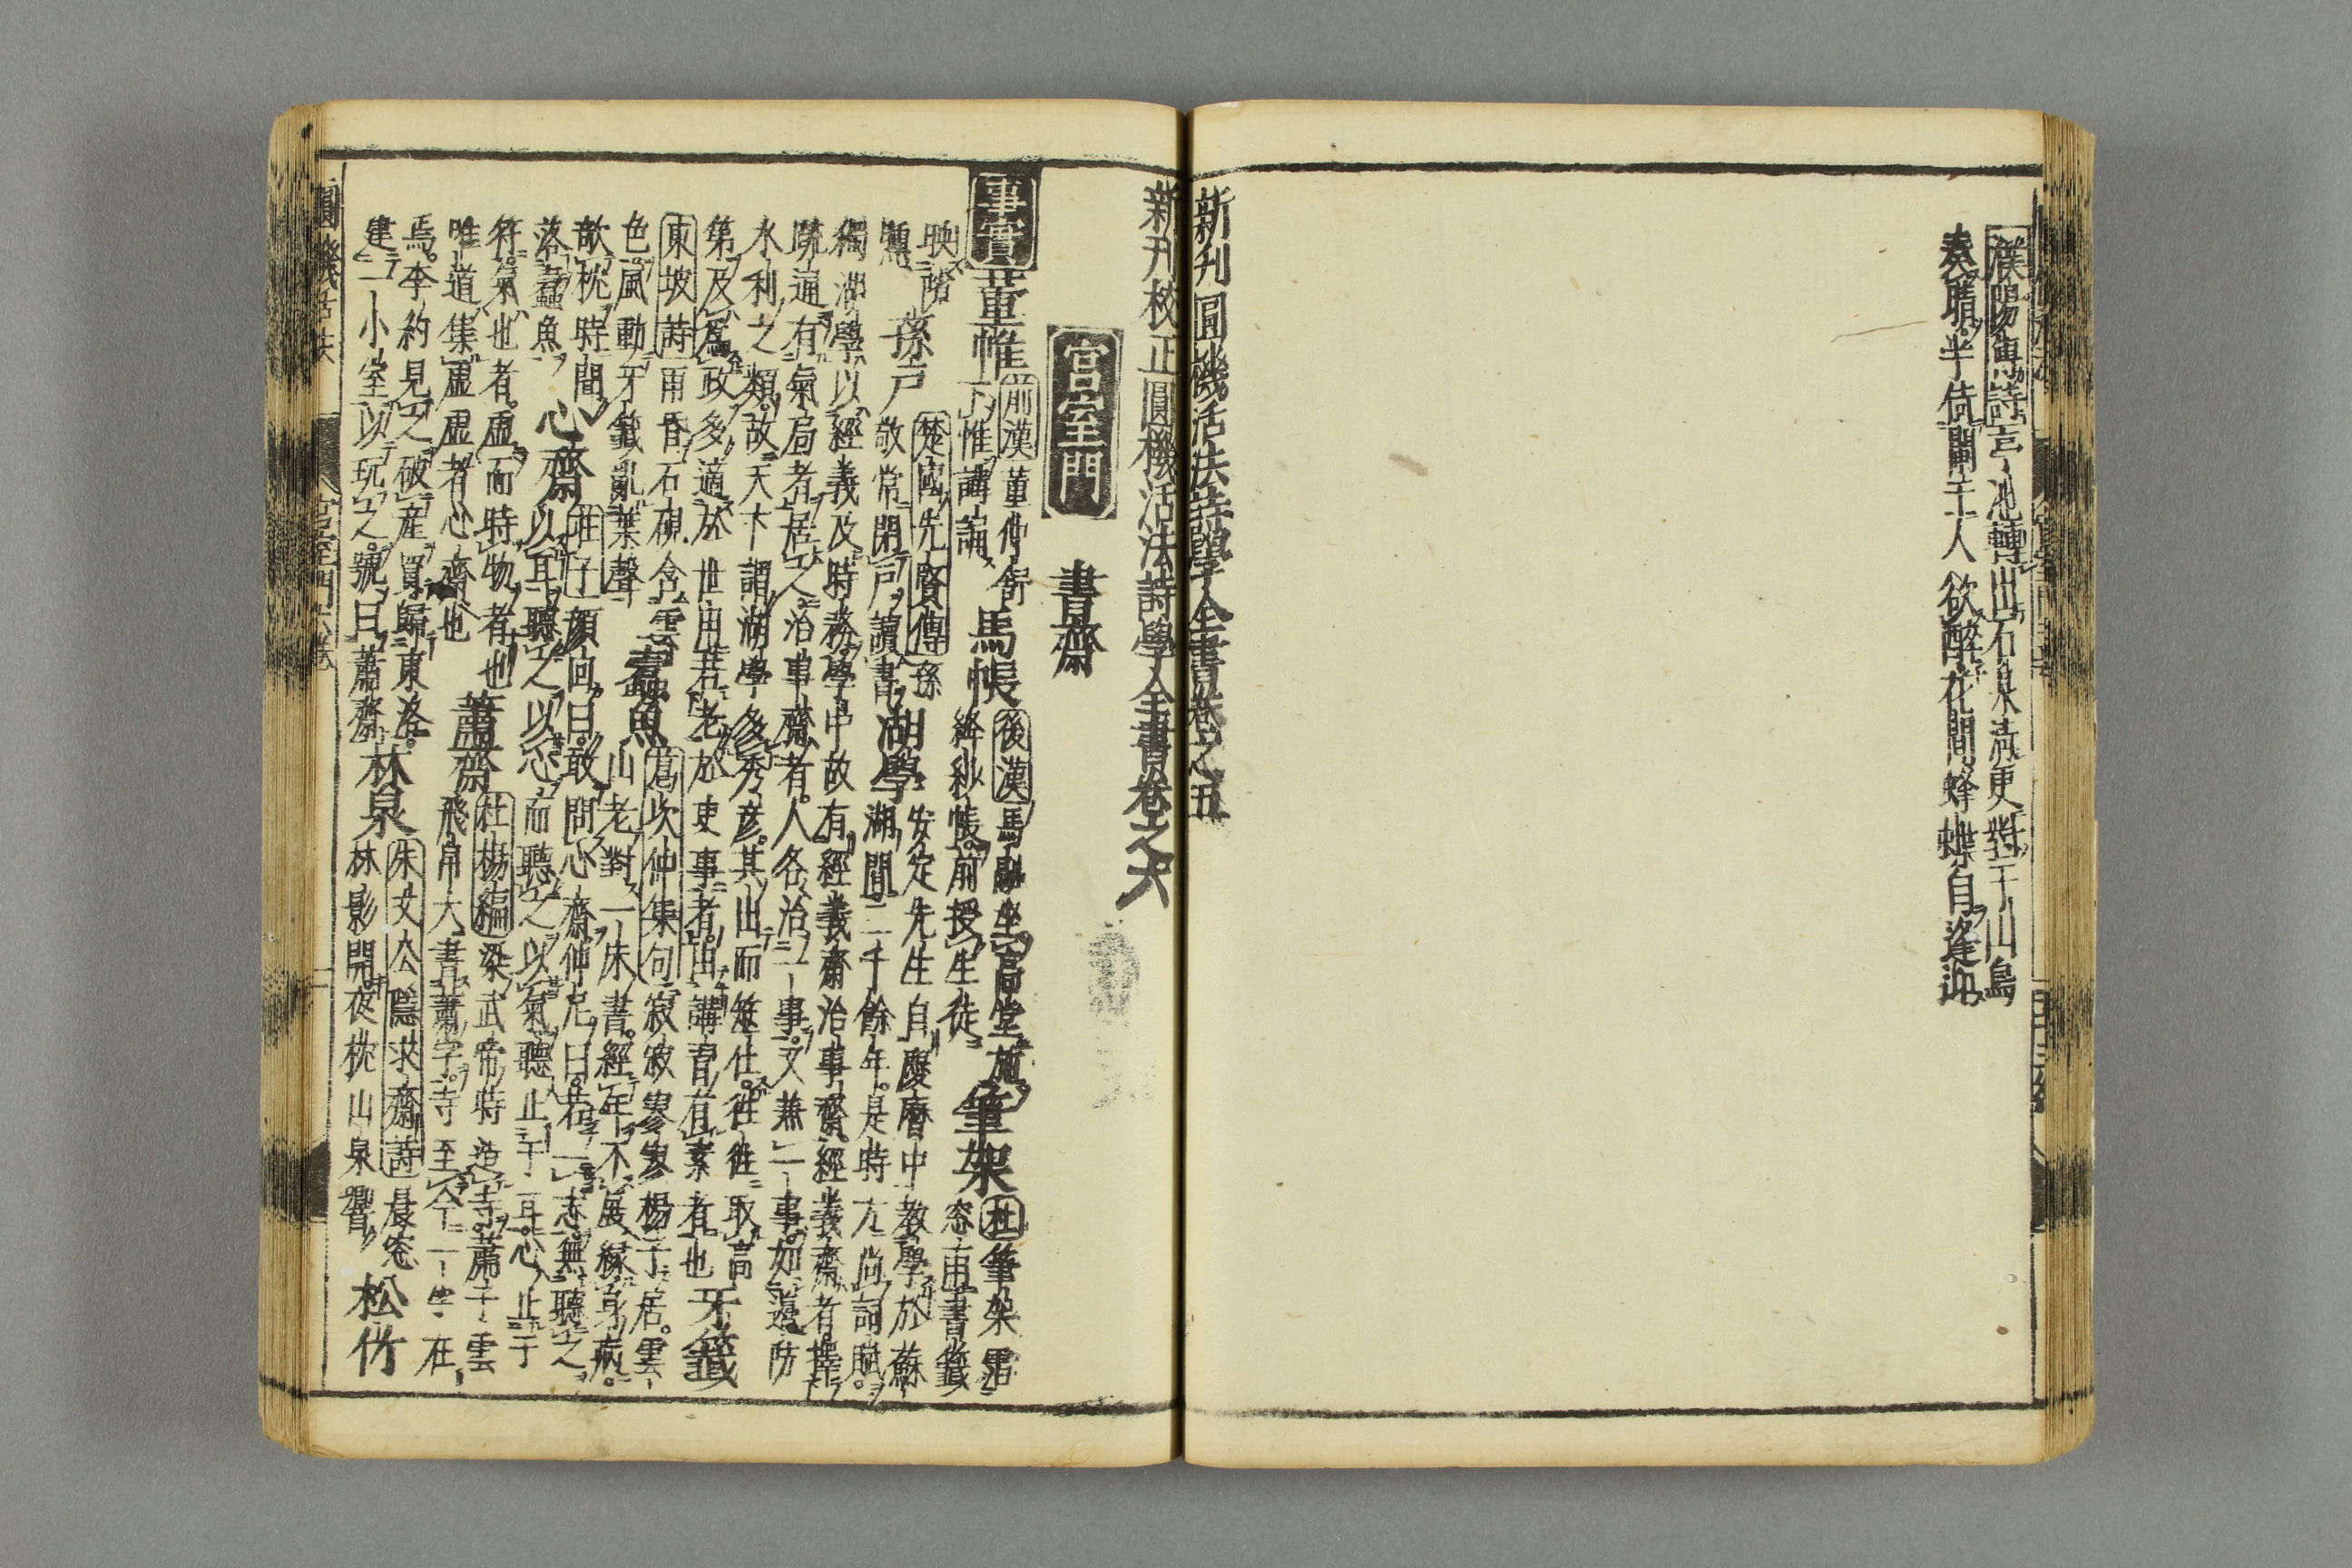 濮陽傳詩亭池轉出石泉淸更對千山鳥
奏晴半倚闌干人欲醉花間蜂蝶自逢迎
新刋圓機活法詩學全書卷之五
新刋校正圓機活法詩學全書卷之六
宮室門 書齋
事實 董帷 前漢董仲舒
下帷講誦 馬帳 後漢馬融坐高堂施
絳紗帳前授生徒 筆架 杜筆架霑
窓雨書籤
映隙 孫戸 楚國先賢傳孫
敬常閉戸讀書 湖學 安定先生自慶曆中教學於蘇
湖間二十餘年是時方尚詞賦
獨湖學以經義及時務學中故有經義齋治事齋經義齋者擇
疏通有氣局者居之治事齋者人各治一事又兼一事如邊防
水利之類故天下謂湖學多秀彦其出而筮仕往往取高
第及爲政多適於世用若老於吏事者由講習有素者也 牙籤
東坡詩雨昏石硯含雲
色風動牙籤亂葉聲 蠧魚 葛次仲集句寂寂寥寥楊子居雲
山老對一牀書經年不展緣身病
欹枕時聞
落蠧魚 心齋 莊子顔向曰敢問心齋仲尼曰若一志無聽之
以耳聽之以心而聽之以氣聽止于耳心止于
符氣也者虚而時物者也
唯道集虚虚者心齋也 蕭齋 杜楊編梁武帝時造寺蕭子雲
飛帛大書蕭字寺至今一字在
焉李約見之破産買歸東洛
建一小室以玩之號曰蕭齋 林泉 朱文公隱求齋詩晨窓
林影開夜枕山泉響 松竹
圓機活法 宮室門六卷